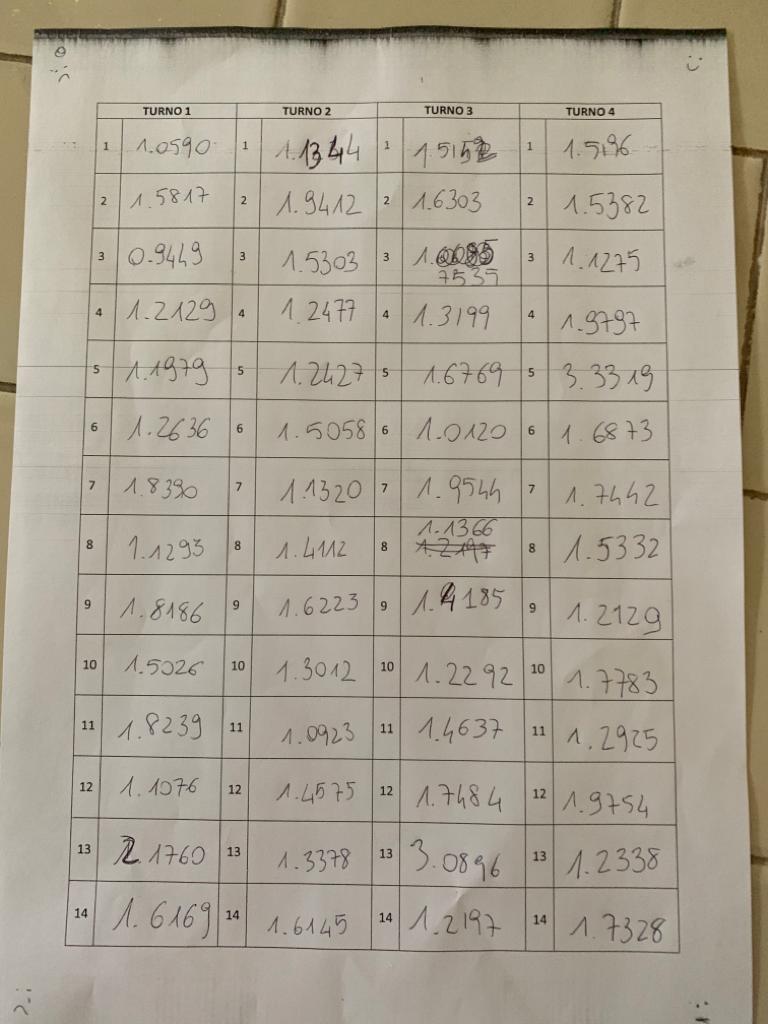 TURNO 1 TURNO 2 TURNO 3 TURNO 4
1 1.0590 1 1.1344 1 1 1.5196
2 1.5817 2 1.9412 2 1.6303 2 1.5382
3 0.9449 3 1.5303 3 1. 7535 3 1.1275
4 1.2129 4 1.2477 4 1.3199 4 1.9797
5 1.1979 5 1.2427 5 1.6769 5 3.3319
6 1.2636 6 1.5058 6 1.0120 6 1.6873
7 1.8390 7 1.1320 7 1.9544 7 1.7442
8 1.1293 8 1.4112 8 1.1366 1.2197 8 1.5332
9 1.8186 9 1.6223 9 1.4185 9 1.2129
10 1.5026 10 1.3012 10 1.2292 10 1.7783
11 1.8239 11 1.0923 11 1.4637 11 1.2925
12 1.1076 12 1.4575 12 1.7484 12 1.9754
13 13 1.3378 13 3.0896 13 1.2338
14 1.6169 14 1.6145 14 1.2197 14 1.7328